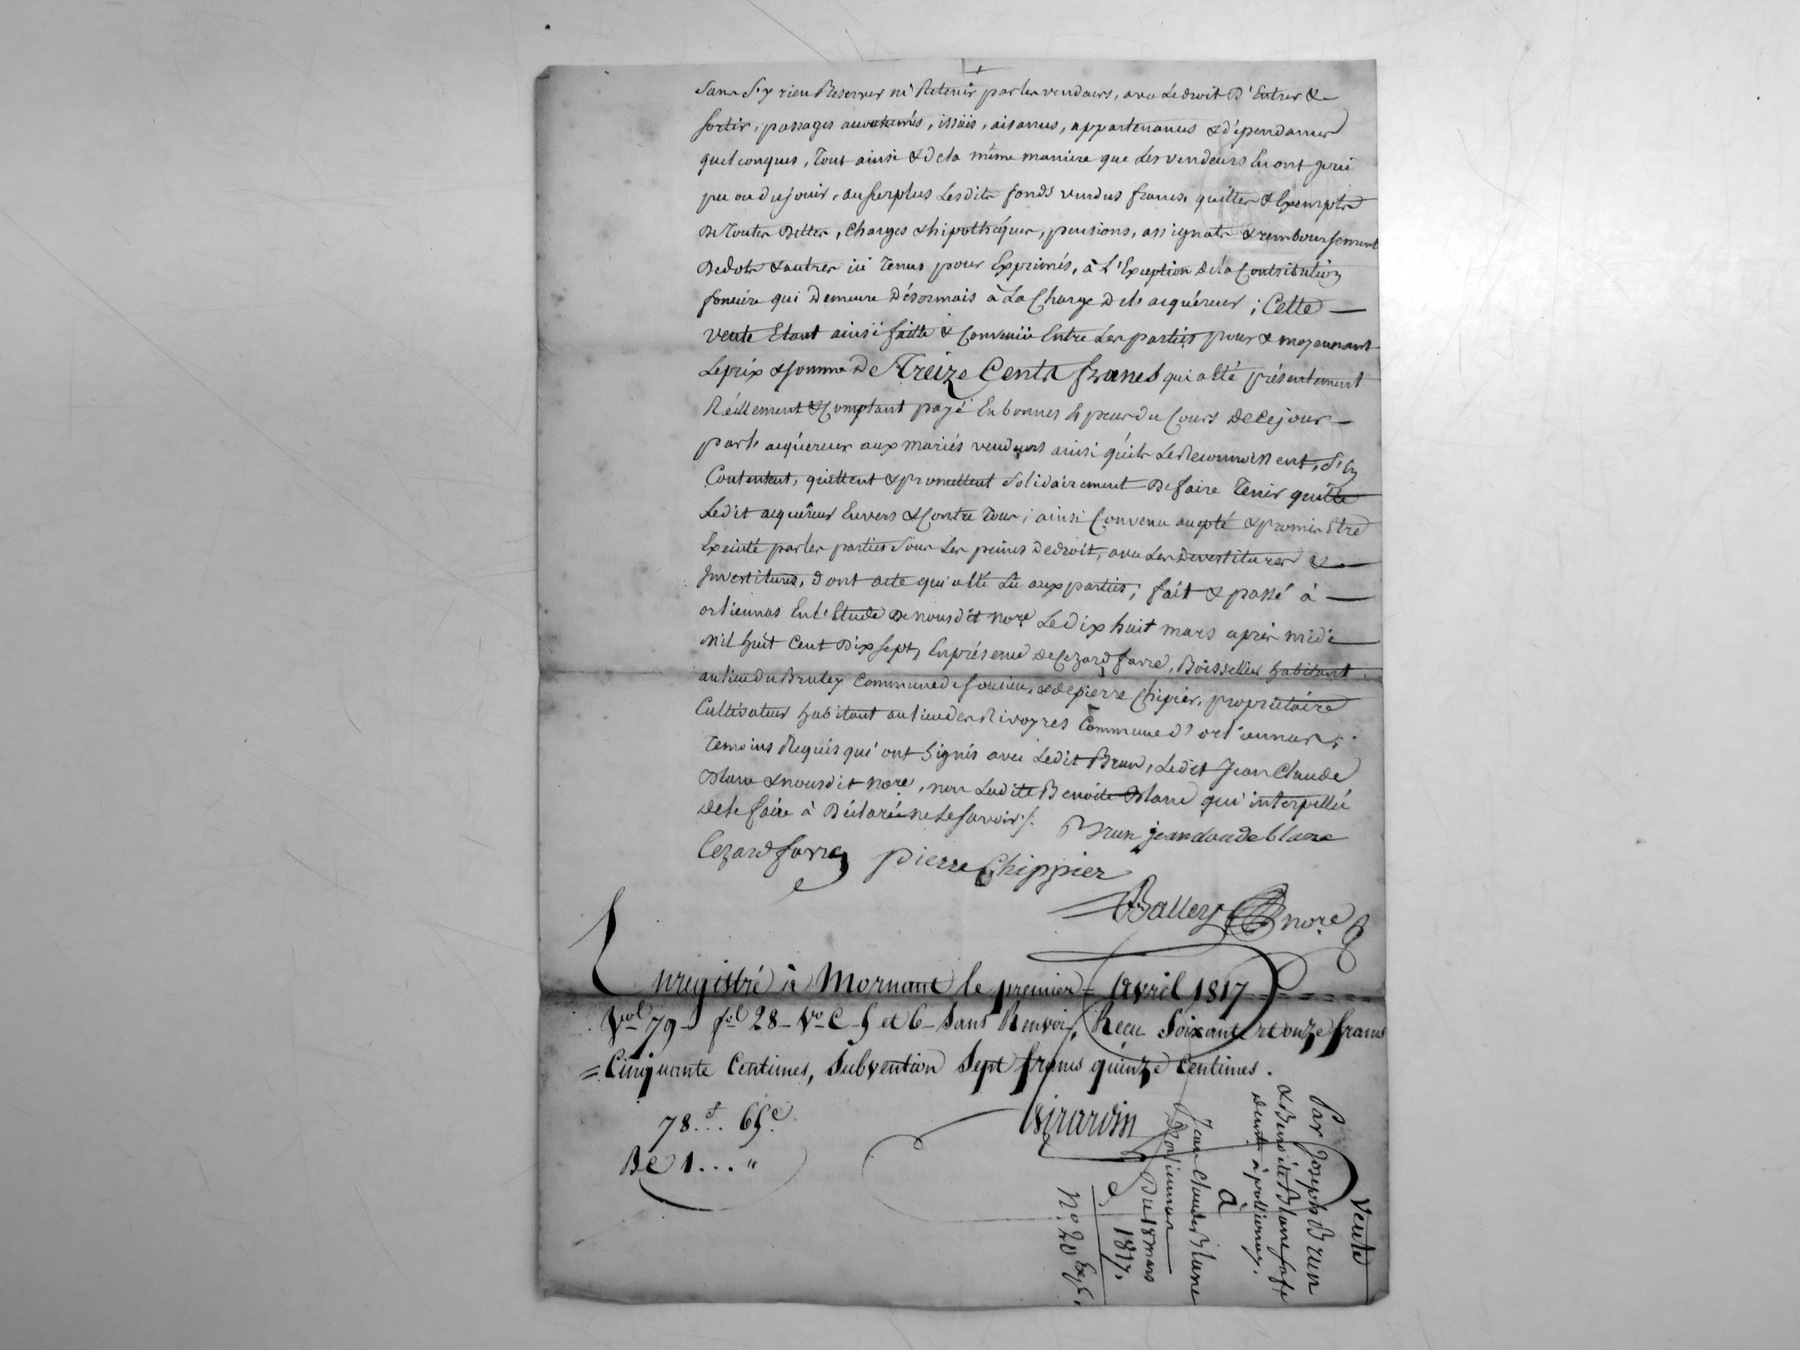 Sans s'y rien Reserver ni Retenir par les vendeurs, avec le droit D'Entrer &
sortir, passages accoutumés, issüis, aisances, appartenances & dépendances
quelconques, Tout ainsi & de la même maniere que Les vendeurs En ont joui
pu ou du jouir, au surplus Lesdits fonds vendus francs, quittes & Exempts
De Toutes Dettes, Charges & hipothéques, pensions, assignats & remboursement
De dots & autres ici Tenus pour Exprimés, à L'Exception de la Contribution
fonciére qui Demeure Désormais à La Charge de l'acquéreur ; Cette
vente Etant ainsi faitte & Convenüe Entre Les parties pour & moyennant
Le prix & somme De Treize Cents francs qui a été présentement
Réellement & Comptant payé En bonnes Espèces du Cours De ce jour
par l'acquéreur aux mariés vendeurs ainsi qu'ils Le Reconnoissent, s'En
Contentent, quittent & promettent Solidairement De faire Tenir quitte
Ledit acquéreur Envers & Contre Tous ; ainsi Convenu accepté & promis Etre
Exécuté par les parties Sous Les peines De droit, avec Les Devestitures &
Investitures, Dont acte qui a été Lû aux parties ; fait & passé à
orliennas En l'Etude De nousdit Nore. Le dix huit mars après midi
Mil huit Cent Dix sept, En présence De Cezard favre, Boisselier habitant
au lieu du Brulez Commune de Soucieu, & de pierre Chipier, propriétaire
Cultivateur habitant au lieu des Rivoyres Commune d'orliennas ;
Temoins Requis qui ont Signés avec Ledit Brun, Ledit Jean Claude
Blanc & nousdit Nore, non Ladite Benoite Blanc qui interpellée
de le faire à Déclaré ne Le savoir ./.
Brun jean claude blanc
Cezard favre pierre Chippier
Balley nore
Enregistré à Mornant le premier avril 1817
Vol 79 fol 28 Vo C 5 et 6 Sans Renvoi, Recu Soixante et onze francs
Cinquante Centimes, Subvention Sept francs quinze Centimes.
78f... 65c
Be 1... "
Girardin
Vente
Par Joseph Brun
& Benoite Blanc sa fe
deurts à pollionnay.
à
Jean Claude Blanc
D'orliennas
Du 18 mars
1817.
No. 20